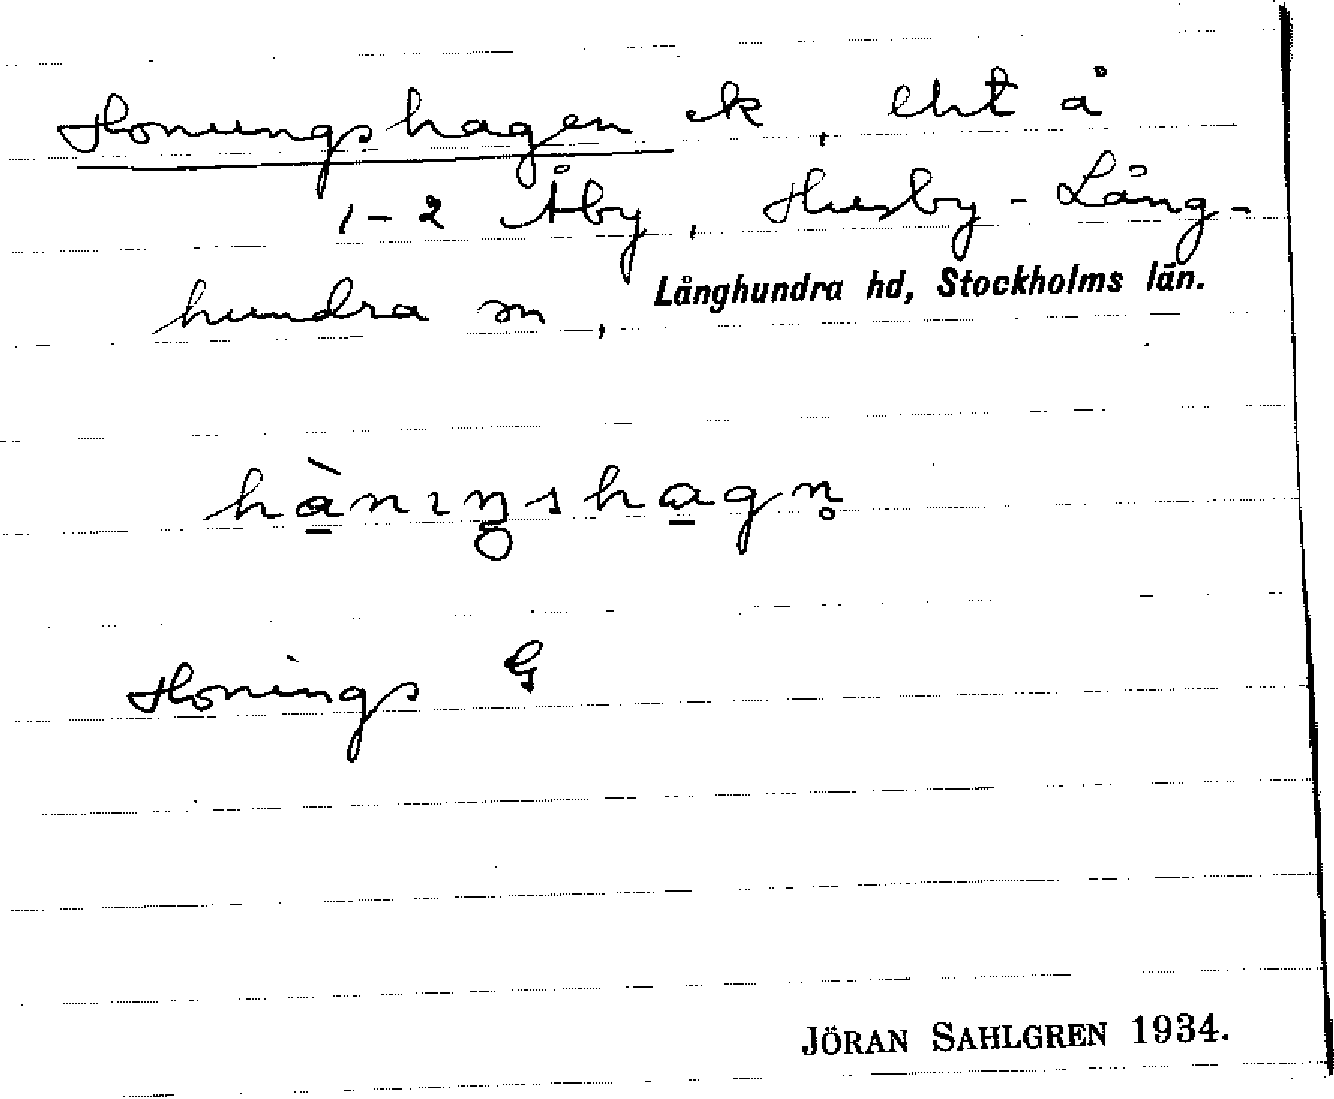 Honungshagen k, eht å
1-2 Åby, Husby-Lång-
hundra sn, Långhundra hd, Stockholms län.
hà̱nıŋsha̱gn̥
Honings G
JÖRAN SAHLGREN 1934.